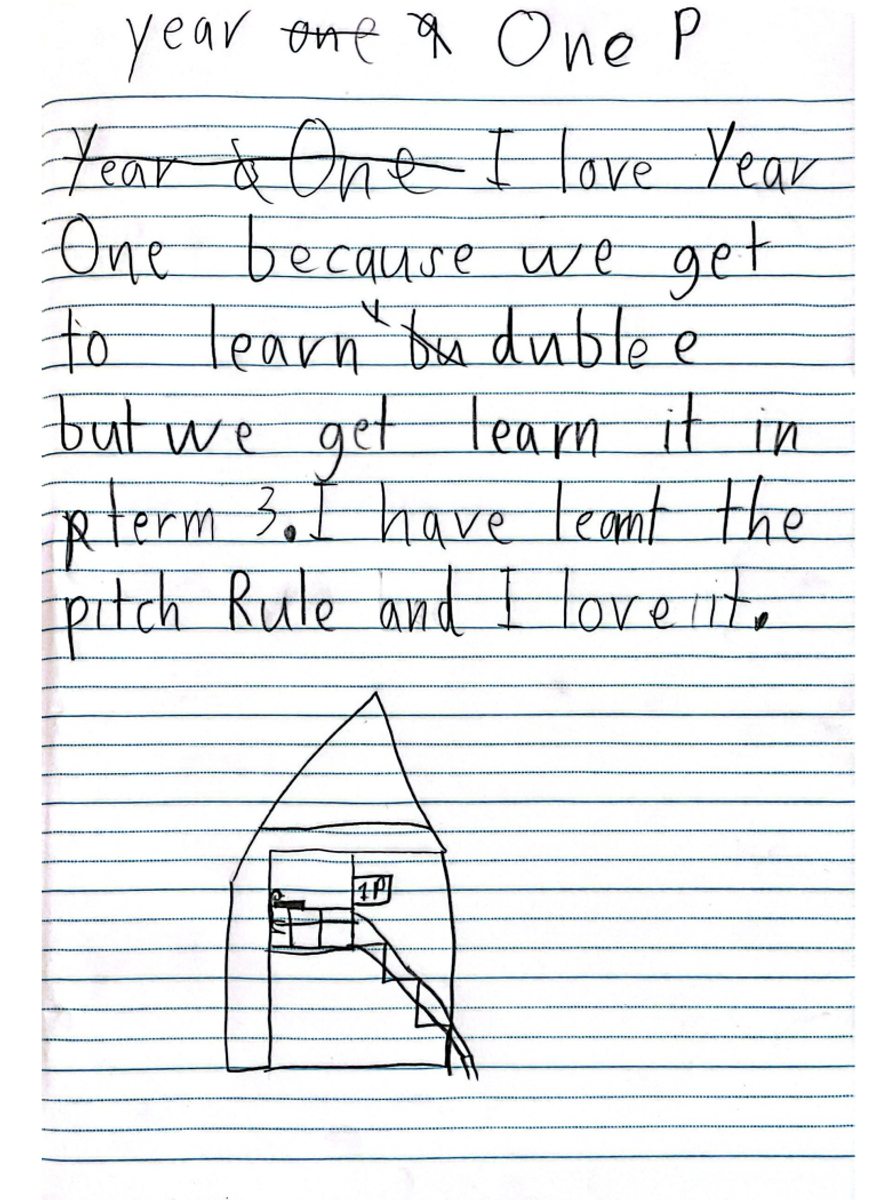 year one a One P
Year a One I love Year
One because we get
to learn bu dublee
but we get learn it in
p term 3. I have learnt the
pitch Rule and I love it.
1P